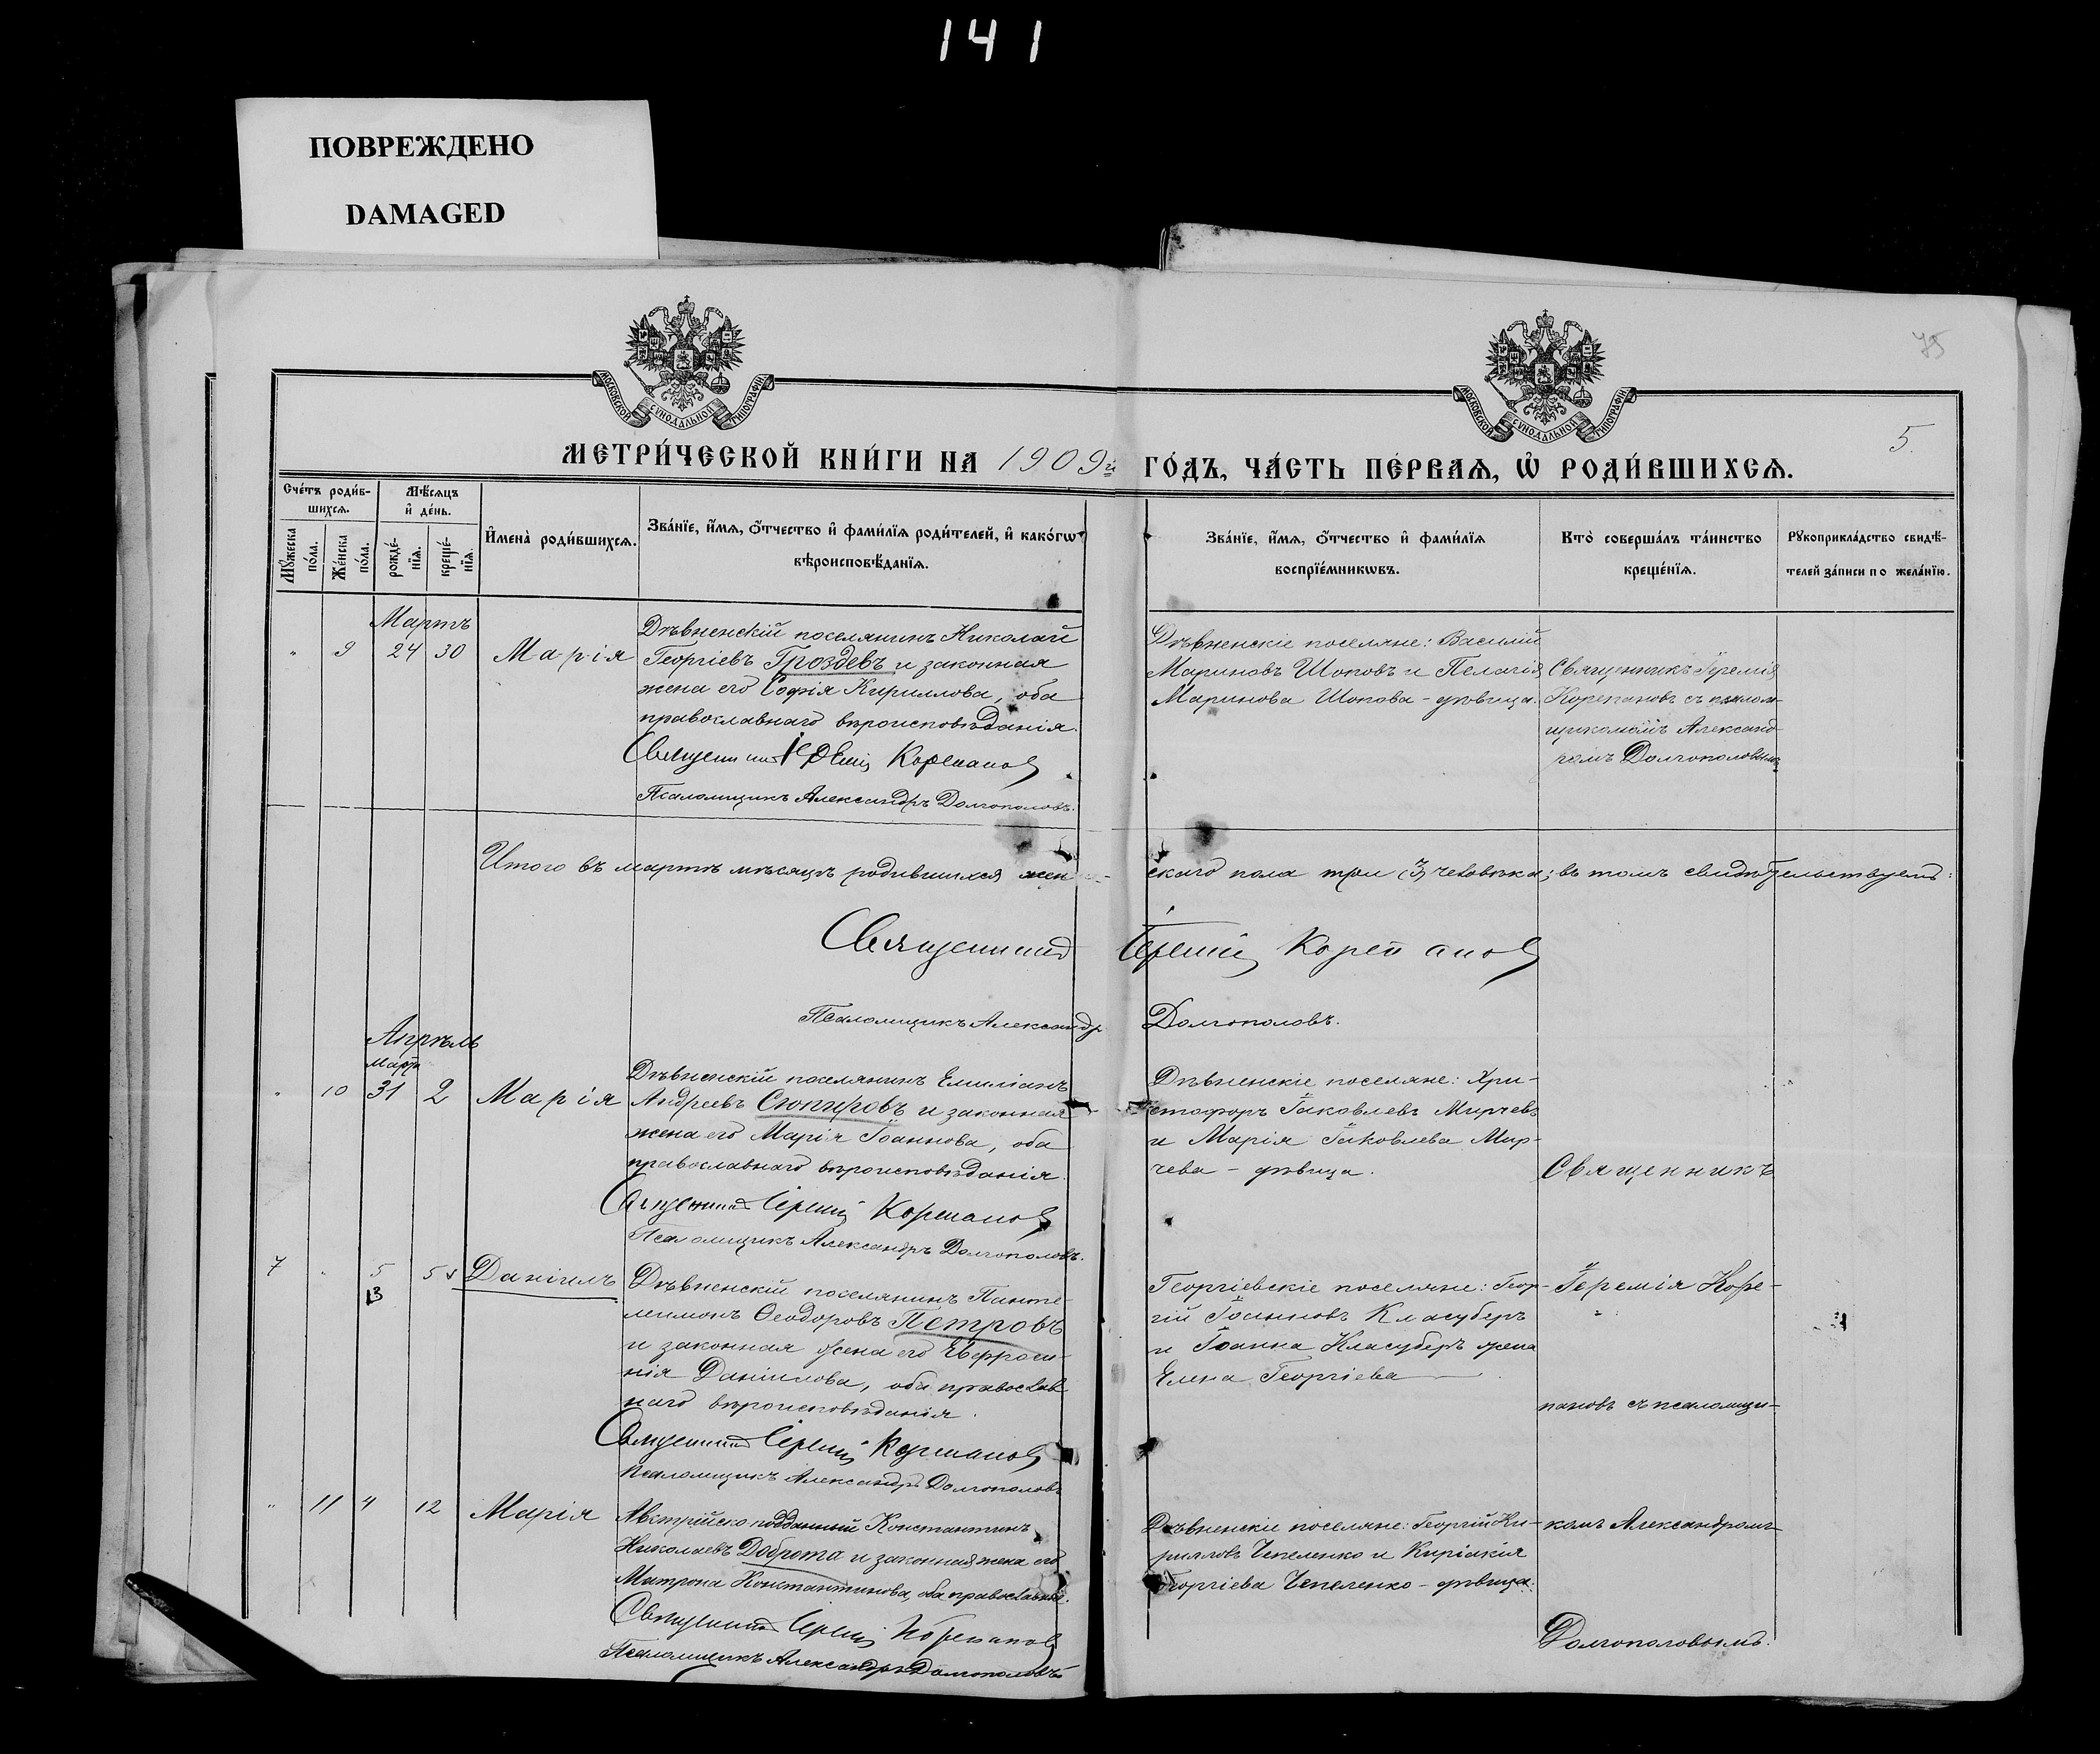 141
ПОВРЕЖДЕНО
DAMAGED
75
МОСКОВСКОЙ СУНОДАЛЬНОЙ ТИПОГРАФІИ
МОСКОВСКОЙ СУНОДАЛЬНОЙ ТИПОГРАФІИ
5.
МЕТРИ́ЧЕСКОЙ КНИ́ГИ НА 1909й ГО́ДЪ, ЧА́СТЬ ПЕ́РВАѦ, Ѡ҆ РОДИ́ВШИХСѦ.
Сче́тъ роди́в-
шихсѧ.
Мѣ́сѧцъ
и҆ де́нь.
Мꙋ́жеска по́ла.
Же́нска по́ла.
рожде́-нїѧ.
креще́-нїѧ.
И҆мена̀ роди́вшихсѧ.
Зва́нїе, и҆́мѧ, ѻ҆́тчество и҆ фами́лїѧ роди́телей, и҆ како́гѡ
вѣроисповѣ́данїѧ.
Зва́нїе, и҆́мѧ, ѻ҆́тчество и҆ фами́лїѧ
воспрїе́мникѡвъ.
Кто̀ соверша́лъ та́инство
креще́нїѧ.
Рꙋкоприкла́дство свидѣ́-
телей за́писи по жела́нїю.
Мартъ
" 9 24 30 Марія
Дѣвненскій поселянинъ Николай
Георгіевъ Гроздевъ и законная
жена его Софія Кириллова, оба
православнаго вѣроисповѣданія.
Священникъ Іеремія Корепановъ
Псаломщикъ Александръ Долгополовъ.
Дѣвненскіе поселяне: Василій
Мариновъ Шоповъ и Пелагія
Маринова Шопова - дѣвица.
Священникъ Іеремія
Корепановъ съ псалом-
щикомъ Александ-
ромъ Долгополовымъ
Итого въ мартѣ мѣсяцѣ родившихся жен
скаго пола три (3) человѣка; въ томъ свидѣтельствуемъ:
Священникъ Іеремія Корепановъ
Псаломщикъ Александръ Долгополовъ.
Апрѣль
марта
" 10 31 2 Марія
Дѣвненскій поселянинъ Емиліанъ
Андреевъ Сюпировъ и законная
жена его Марія Іоаннова, оба
православнаго вѣроисповѣданія.
Священникъ Іеремія Корепановъ
Псаломщикъ Александръ Долгополовъ.
Дѣвненскіе поселяне: Хри-
стофоръ Іаковлевъ Мирчевъ
и Марія Іаковлева Мир-
чева - дѣвица.
Священникъ
7 " 5 5 Даніилъ
13
Дѣвненскій поселянинъ Панте-
леимонъ Ѳеодоровъ Петровъ
и законная жена его Евфроси-
нія Даніилова, оба православ
наго вѣроисповѣданія.
Священникъ Іеремія Корепановъ
Псаломщикъ Александръ Долгополовъ
Георгіевскіе поселяне: Геор-
гій Іоанновъ Класуберъ
и Іоанна Класуберъ жена
Елена Георгіева
Іеремія Коре-
пановъ съ псаломщи-
" 11 4 12 Марія
Австрійско подданный Константинъ
Николаевъ Доброта и законная жена его
Матрона Константинова, оба православные.
Священникъ Іеремія Корепановъ
Псаломщикъ Александръ Долгополовъ
Дѣвненскіе поселяне: Георгій Ки-
рилловъ Чепеленко и Киріакія
Георгіева Чепеленко - дѣвица.
комъ Александромъ
Долгополовымъ.